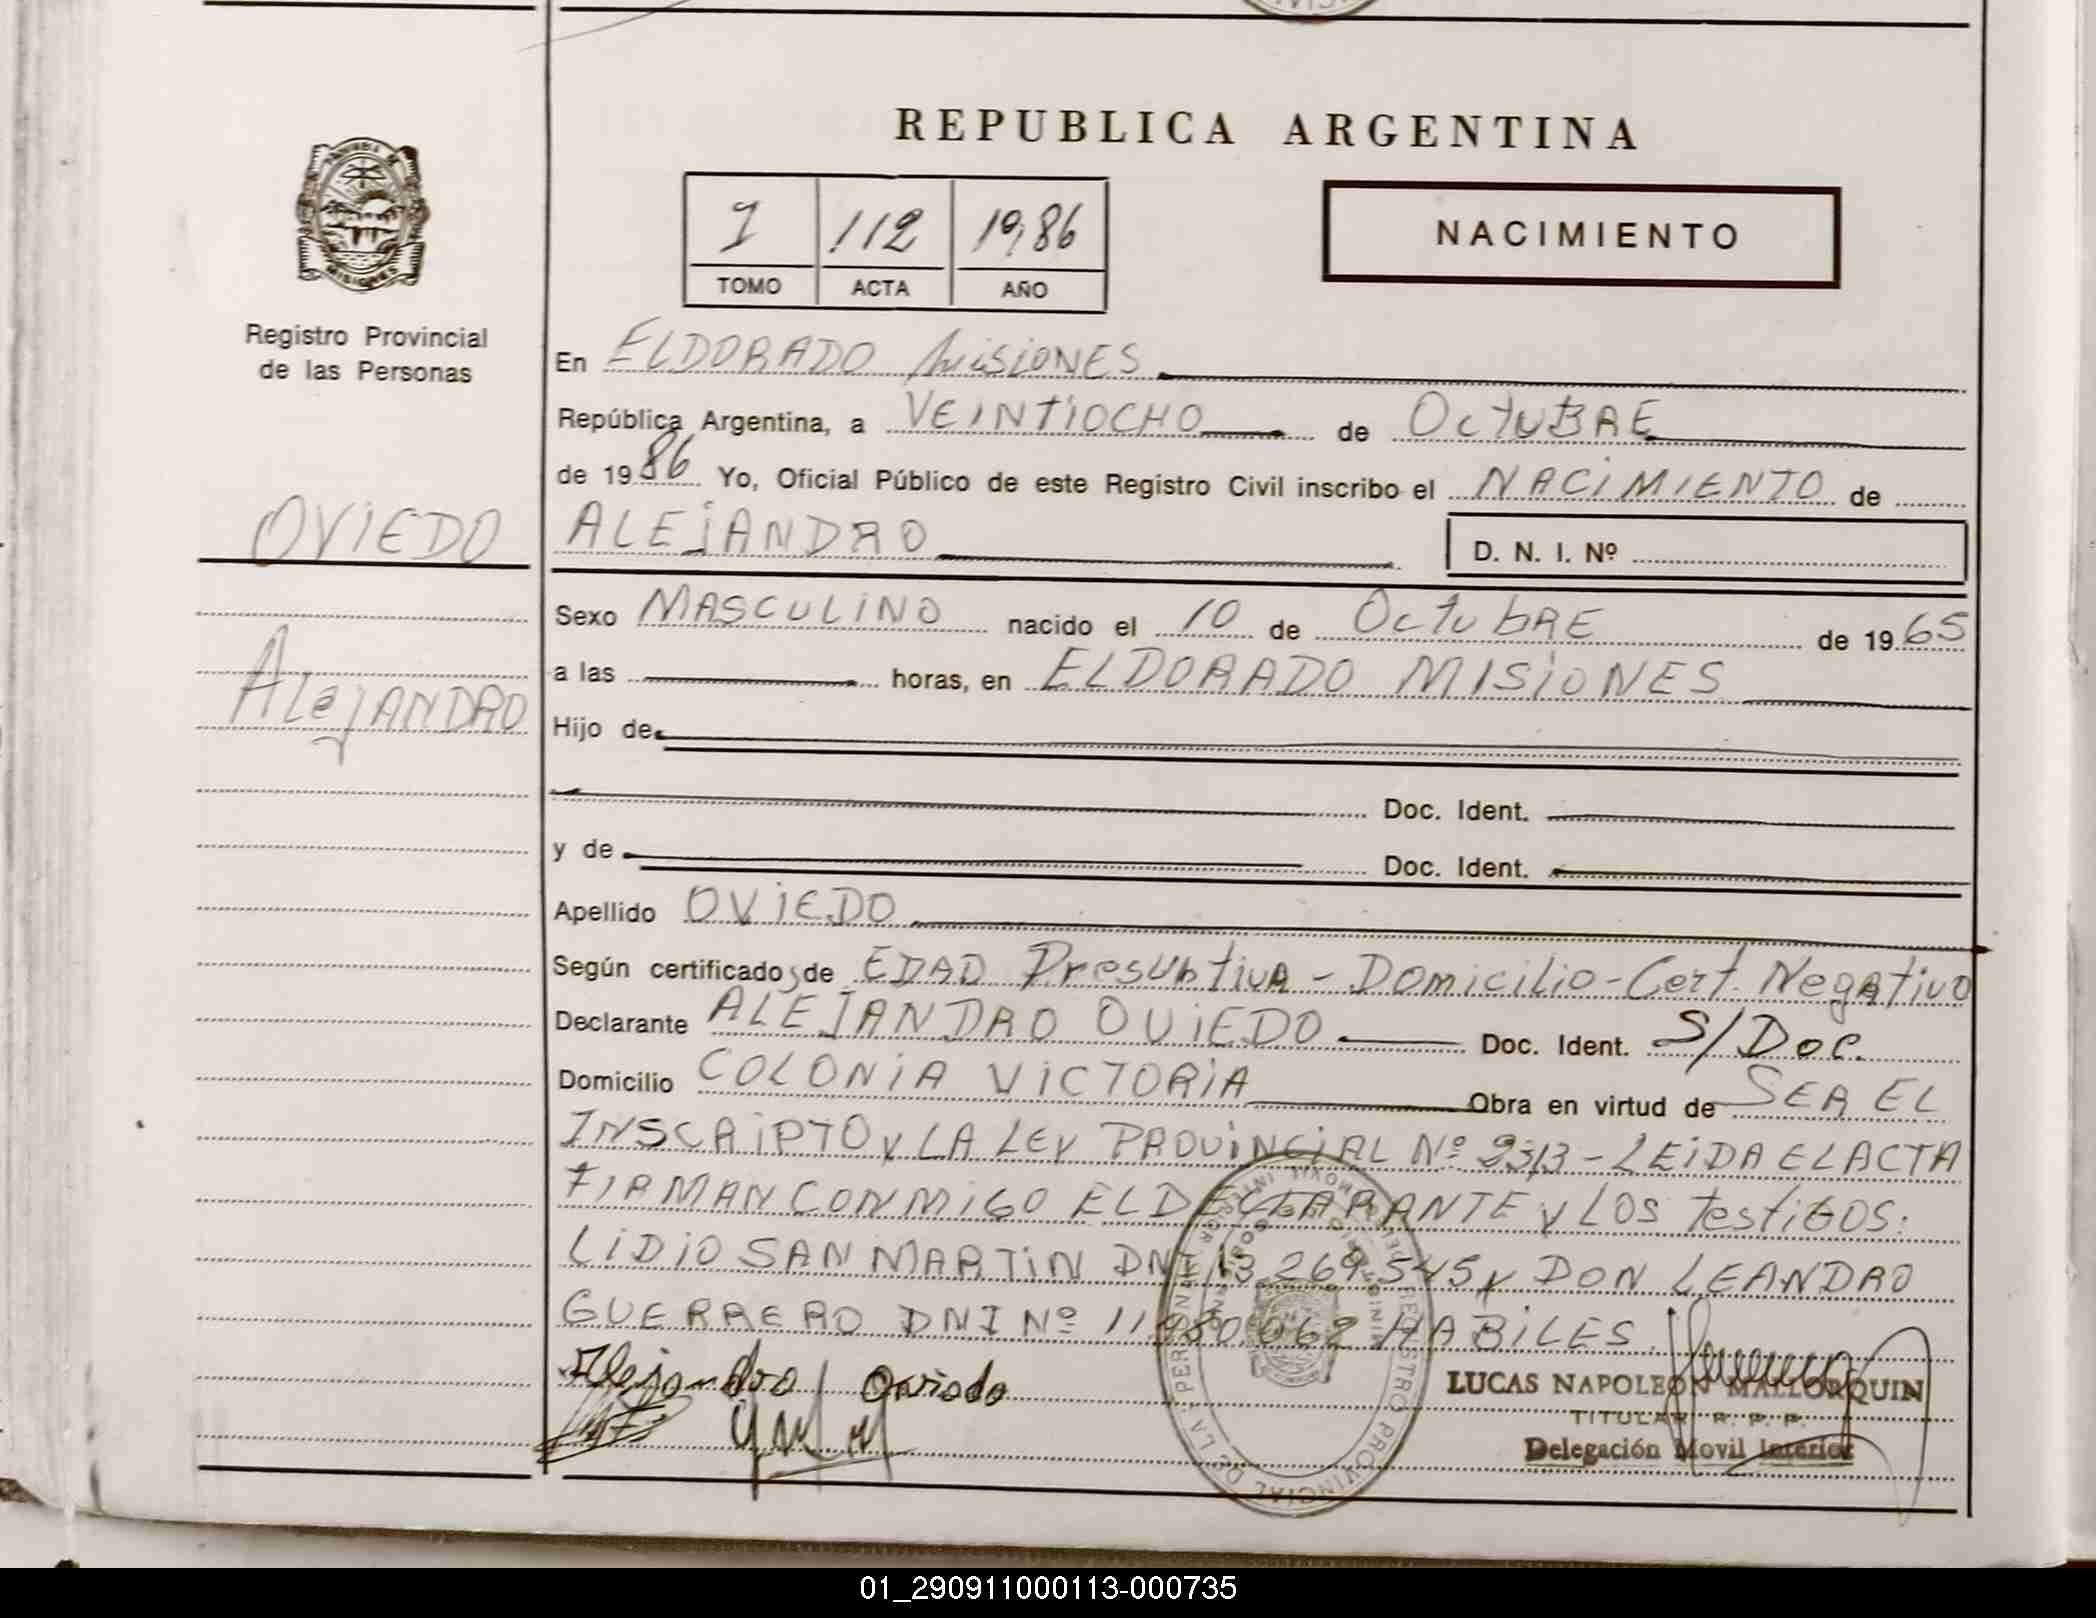 REPUBLICA ARGENTINA
I 112 1986
TOMO ACTA AÑO
NACIMIENTO
MISIONES
Registro Provincial
de las Personas
En ELDORADO MISIONES
República Argentina, a VEINTIOCHO de OctuBRE
de 1986 Yo, Oficial Público de este Registro Civil inscribo el NACIMIENTO de
OVIEDO ALEJANDRO D. N. I. Nº
Sexo MASCULINO nacido el 10 de OctubRE de 1965
AlejANDRO
a las horas, en ELDORADO MISIONES
Hijo de
Doc. Ident.
y de Doc. Ident.
Apellido OVIEDO
Según certificados de EDAD Presubtiva - Domicilio - Cert. Negativo
Declarante ALEJANDRO OVIEDO Doc. Ident. S/Doc.
Domicilio COLONIA VICTORIA Obra en virtud de SER EL
INSCRIPTO y LA LEY PROVINCIAL Nº 2313 - LEIDA EL ACTA
FIRMAN CONMIGO EL DECLARANTE y LOS testiGOS:
LIDIO SAN MARTIN DNI 13.269.545 y DON LEANDRO
GUERRERO DNI Nº 11.480.062 HABILES.
Alejandro Oviedo
LUCAS NAPOLEON MALLORQUIN
TITULAR R. P. P.
Delegación Movil Interior
REGISTRO PROVINCIAL DE LA PERSONA
01_290911000113-000735